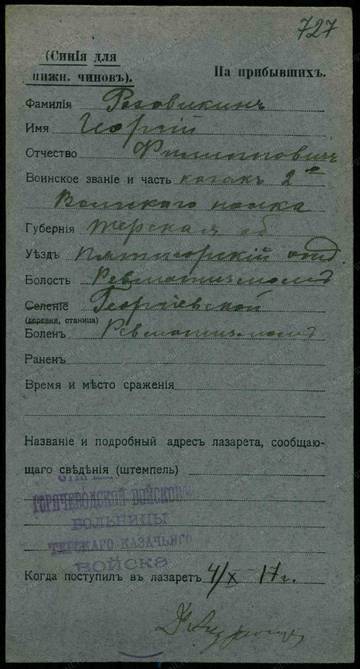 727
(Синія для
нижн. чиновъ).
На прибывшихъ.
Фамилія Роговикинъ
Имя Георгій
Отчество Филипповичъ
Воинское званіе и часть козакъ 2го
Волгскаго полка
Губернія Терская об
Уѣздъ Пятигорскій отд.
Волость Ревматизмомъ
Селеніе Георгіевской
(деревня, станица)
Боленъ Ревматизмомъ
Раненъ
Время и мѣсто сраженія
Названіе и подробный адресъ лазарета, сообщаю-
щаго свѣдѣнія (штемпель)
ГОРЯЧЕВОДСКОЙ ВОЙСКОВОЙ
БОЛЬНИЦЫ
ТЕРСКАГО КАЗАЧЬЯГО
ВОЙСКА
Когда поступилъ въ лазаретъ 4/X 17г.